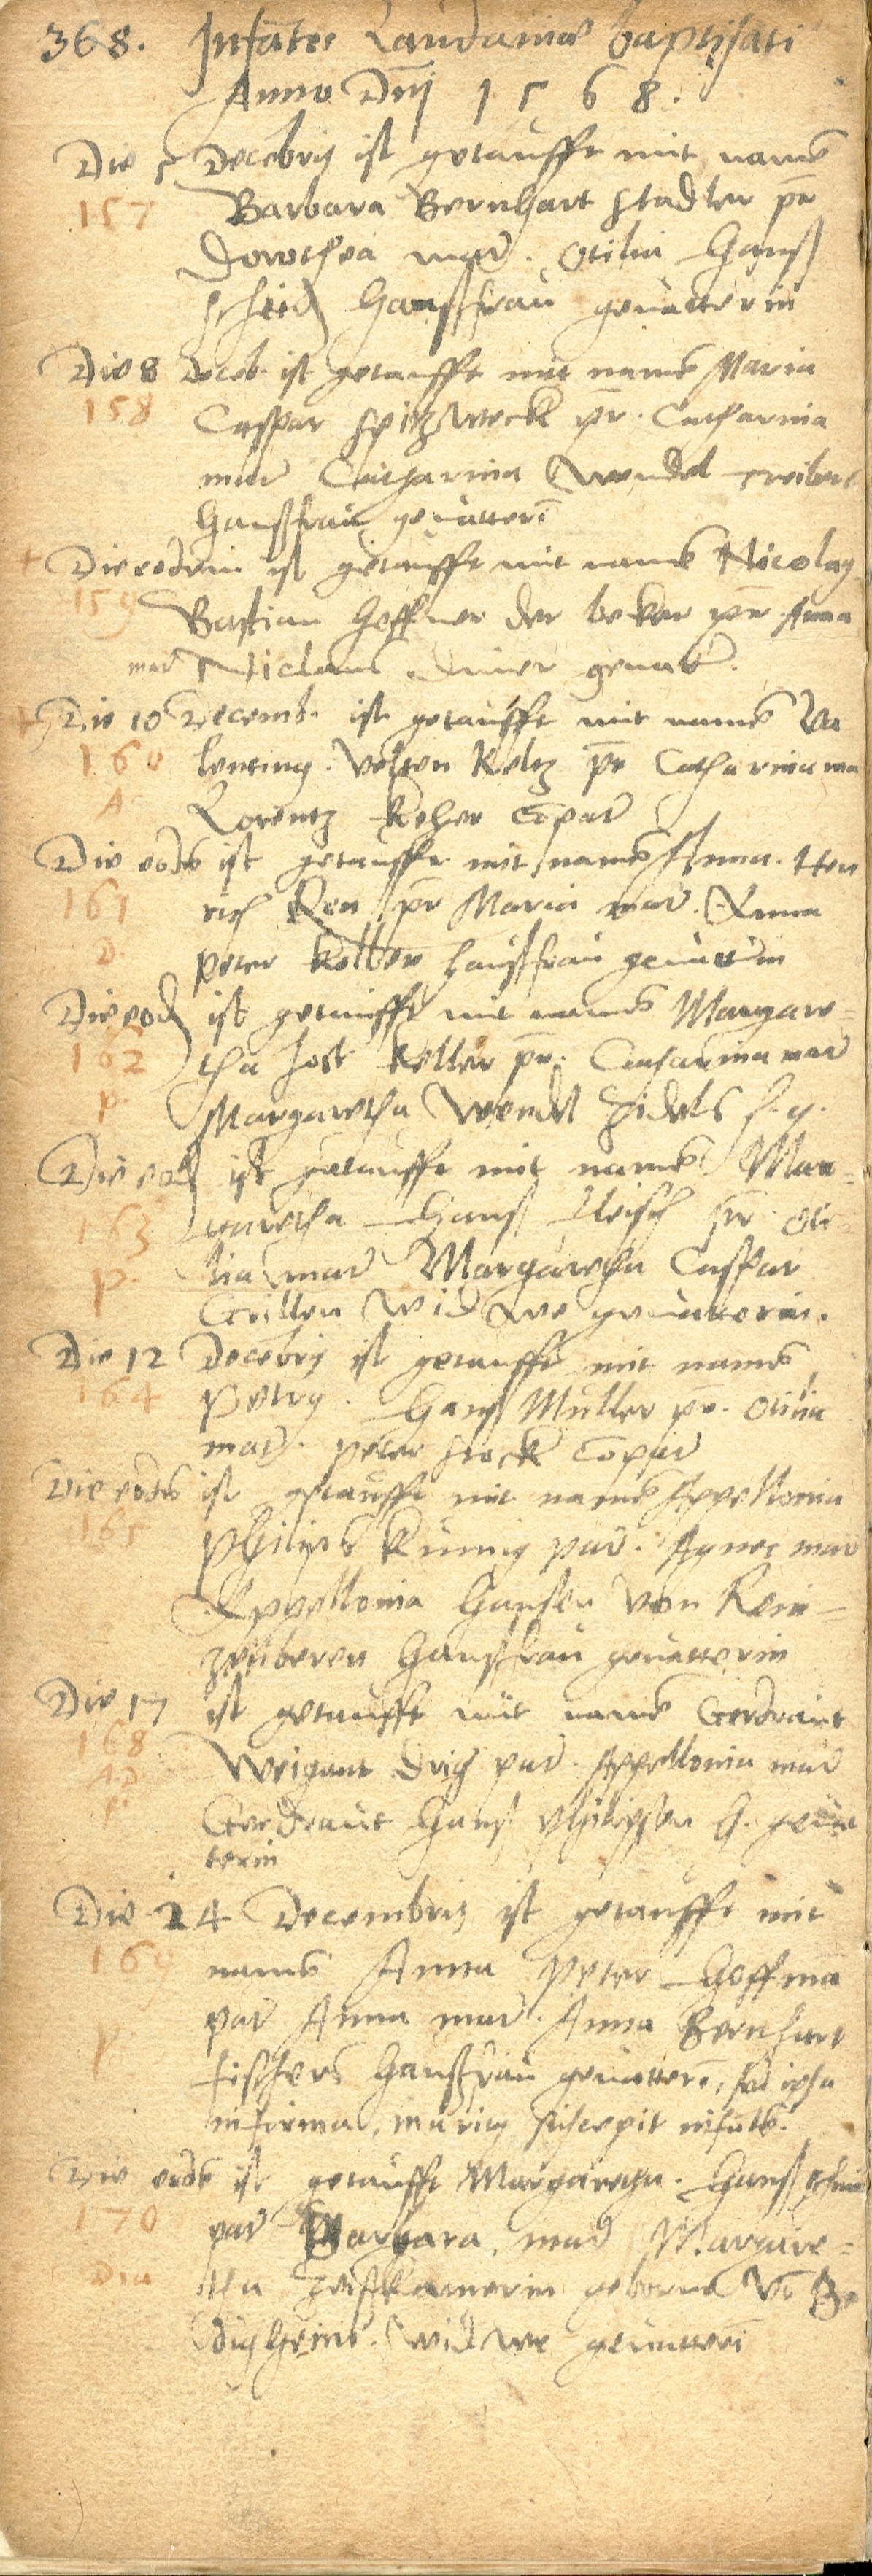 368. Infātes Landaviae baptisati
Anno Dnj 1568.
Die 5 Decēbris ist getaufft mit namē
157 Barbara Bernhart Stadler pr
Dorothea mat̄. Otilia Hans
haußfrau gevatterin
Die 8 Decēb. ist getaufft mit namē Maria
158 Caspar Spitzweck pr. Catharina
mat̄ Catharina Wendel
Haußfrau gevatterī
+ Die eodem ist getaufft mit namē Nicolaus
159 Bastian Hoffner der beker pr. Anna
mat̄ Niclaus gevat̄.
+ Die 10 Decemb. ist getaufft mit namē Va
160 lentinus. Velten Keltz pr Catharina ma
A Lorentz Keher Cōpat̄
Die eodē ist getaufft mit namē Anna. Hen
161 rich pr Maria mat̄. Anna
D. Peter Kolben haußfrau gevatterin
Die eod ist getaufft mit namē Margare=
162 tha Jost Keller pr. Catharina mat̄
p. Margaretha Wendel h. g.
Die eod ist getaufft mit namē Mar=
163 garetha Hans Fleisch pr Oti
p. lia mat̄ Margaretha Caspar
Grillen Widwe gevatterin.
Die 12 Decēbris ist getaufft mit namē
164 Petrus. Hans Müller pr. Otilia
mat̄. Peter Stock Cōpat̄
Die eodē ist getaufft mit namē Appellonia
165 Philips Künig pat̄. Agnes mat̄
Appellonia Hansen von Rein=
zauberen Haußfrau gevatterin
Die 17 ist getaufft mit namē Gerdraut
168 Weigant pat̄. Appellonia mat̄
A.D. Gerdraut Hans Philipsen h. geva
p. terin
Die 24 Decembris ist getaufft mit
169 namē Anna Peter Hoffmā
pat̄ Anna mat̄. Anna Bernhart
p. fischers Haußfrau gevatterī, sed ipsa
infirma, maritus suscepit infātē.
Die eodē ist getaufft Margaretha. Hans
170 pat̄ Barbara. mat̄ Margare=
Dia tha geborne Vō Be
digheim. Widwe gevatterī